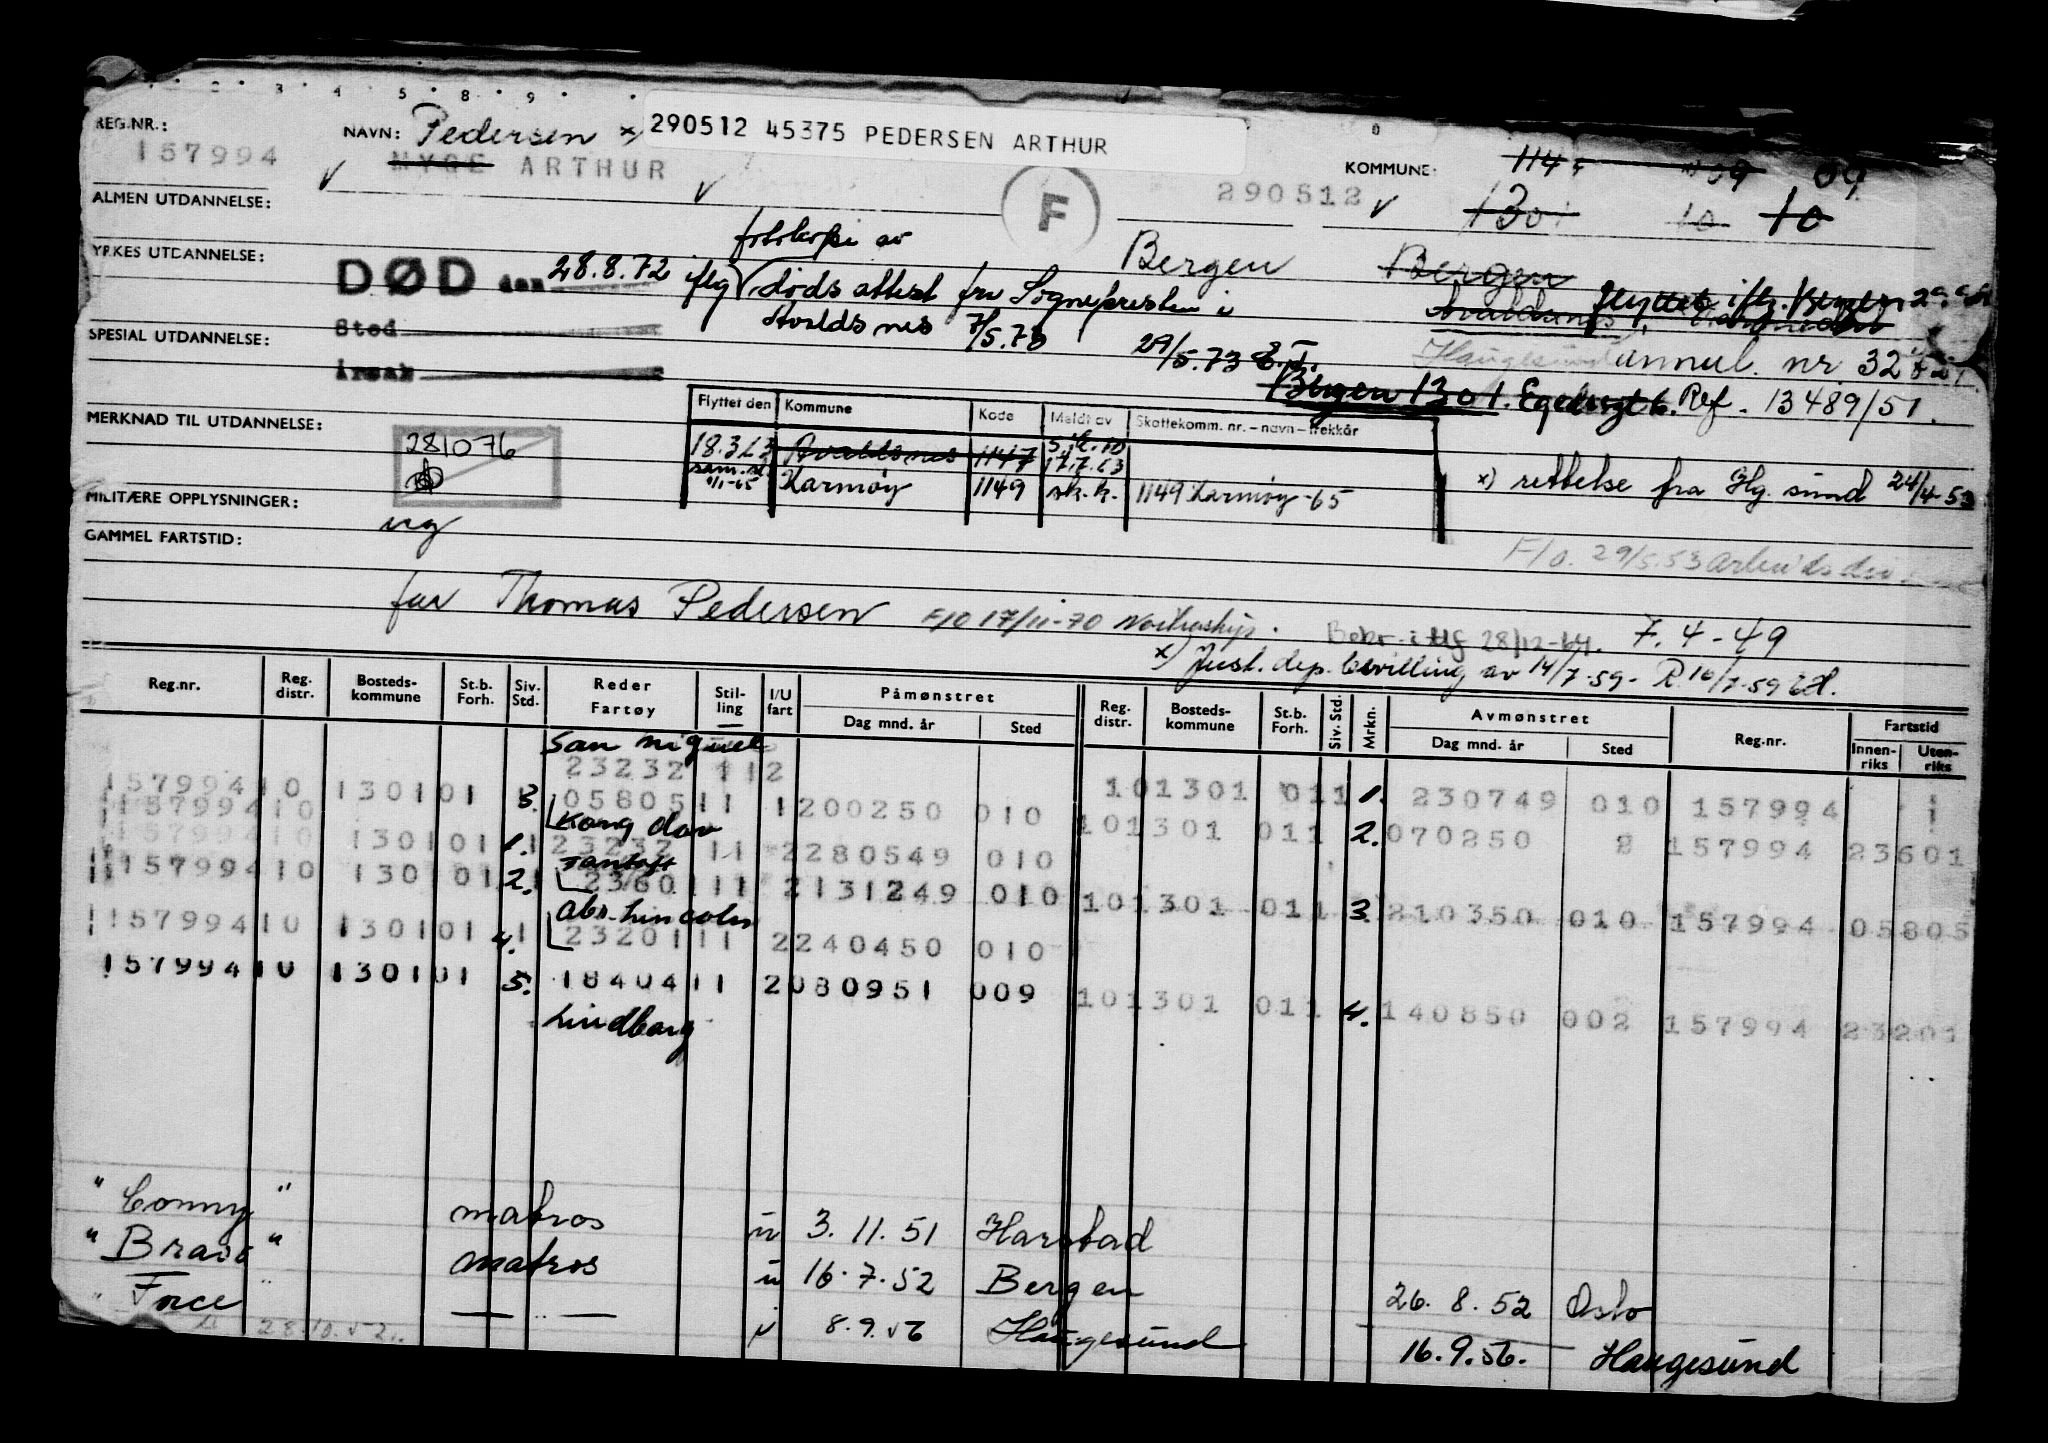 REG.NR.: 157994
NAVN: Pedersen x)
290512 45375 PEDERSEN ARTHUR
MYGE ARTHUR
F
290512
KOMMUNE: 114 09
1301 10 10
ALMEN UTDANNELSE:
YRKES UTDANNELSE:
DØD den 28.8.72 iflg fotokopi av
dødsattest fra Sognepresten i
Avaldsnes 7/5.73
29/5.73
Bergen
Bergen
Sted
Årsak
SPESIAL UTDANNELSE:
Haugesund annul. nr 32
Bergen 1301. Ref. 13489/51.
MERKNAD TIL UTDANNELSE:
281076
Flyttet den Kommune Kode Meldt av Skattekomm. nr. – navn – trekkår
18.3.63 Avaldsnes 1147 17.7.63
1/1-65 Karmøy 1149 sk.k. 1149 Karmøy -65
x) rettelse fra Hg. sund 24/4-53
MILITÆRE OPPLYSNINGER:
ug
GAMMEL FARTSTID:
F/o. 29/5.53
far Thomas Pedersen F/O 17/11-70 Nortraship. 28/12-64. 7.4-49
x) Just. dep. bevilling av 14/7-59- R 16/7-59
Reg.nr. Reg. distr. Bosteds-kommune St.b. Forh. Siv. Std. Reder Fartøy Stil-ling I/U fart Påmønstret Dag mnd. år Sted Reg. distr. Bosteds-kommune St.b. Forh. Siv. Std. Mrkn. Avmønstret Dag mnd. år Sted Reg.nr. Fartstid Innen-riks Uten-riks
San Miguel
23232 112
157994 10 1301 01 3. 05805 11 1 200250 010 10 1301 01 1 1. 230749 010 157994
157994 10
Kong Dav
10 1301 01 1 2. 070250 2 157994 23601
157994 10 1301 01 1. 1 23232 11 2 280549 010
Tantoft
157994 10 130 01 2. 1 2360 111 2 131249 010 10 1301 01 1 3. 210350 010 157994 05805
Abr. Lincoln
157994 10 1301 01 4. 1 23201 11 2 240450 010
157994 10 1301 01 5. 18404 11 2 080951 009 10 1301 01 1 4. 140850 002 157994 23201
Lindborg
" Conny " matros u 3.11.51 Harstad
" Bravo " matros u 16.7.52 Bergen 26.8.52 Oslo
" Force " — " — 8.9.56 Haugesund 16.9.56. Haugesund
28.10.52.